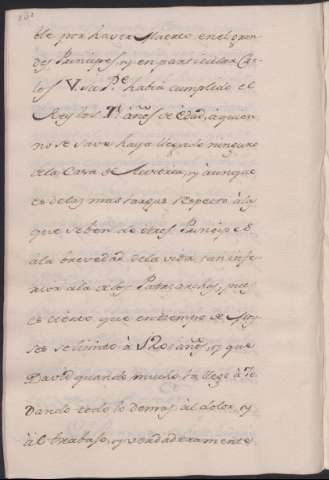 ble por haver Muerto en el gran
des Principes, y en particular Car
los V. su P.e havia cumplido el
Rey los 71. años de edad, à quien
no se save haya llegado ninguno
de la Casa de Austria, y aunque
es de las mas largas respecto à la
que se ben de otros Principes
a la brevedad de la vida tan infe
rior a la de los Patriarchas, pues
es cierto que en tiempo de Moy
ses se limitò à 120 años, y que
David quando mucho la llegò à 70.
Dando todo lo demas al dolor, y
al trabajo, y verdaderamente